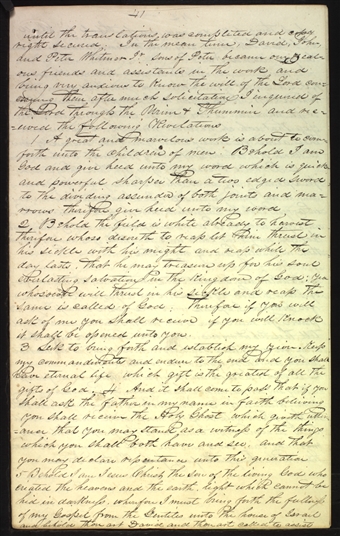 41
until the translations, was completed and copy
right secured. In the mean time, David, John
and Peter Whitmer Jr. sons of Peter became our zeal
ous friends and assistants in the work and
being very anxious to know the will of the Lord con
cerning them after much solicitation I inquired of
the Lord through the Urim & Thummim and re-
ceived the following Revelations
1 A great and marvelous work is about to com
forth unto the children of men Behold I am
God and give heed unto my word which is quick
and powerful sharper than a two edged Sword
to the dividing assunder of both joints and mar
rows therefore give heed unto my word
2 Behold the field is white already to harvest
therefore whoso desireth to reap let him thrust in
his sickle with his might and reap while the
day lasts, that he may treasure up for his soul
everlasting Salvation in the Kingdom of God; Yea
whosoever will thrust in his sickle and reap the
same is called of God therefore if you will
ask of me you shall receive if you will knock
it shall be opened unto you
3 Seek to bring forth and establish my Zion. Keep
my commandments and endure to the end and you shall
have eternal life which gift is the greatest of all the
gifts of God, 4 And it shall come to pass that if you
shall ask the Father in my name in faith believing
you shall receive the Holy Ghost which giveth utter
ance that you may stand as a witness of the things
which you shall both hear and see, and that
you may declare repentance unto this generation
5 Behold I am Jesus Christ the Son of the living God who
created the heavens and the earth, light which cannot be
hid in darkness, wherefore I must bring forth the fulness
of my Gospel from the Gentiles unto the house of Israel
and behold thou art David and thou art called to assist